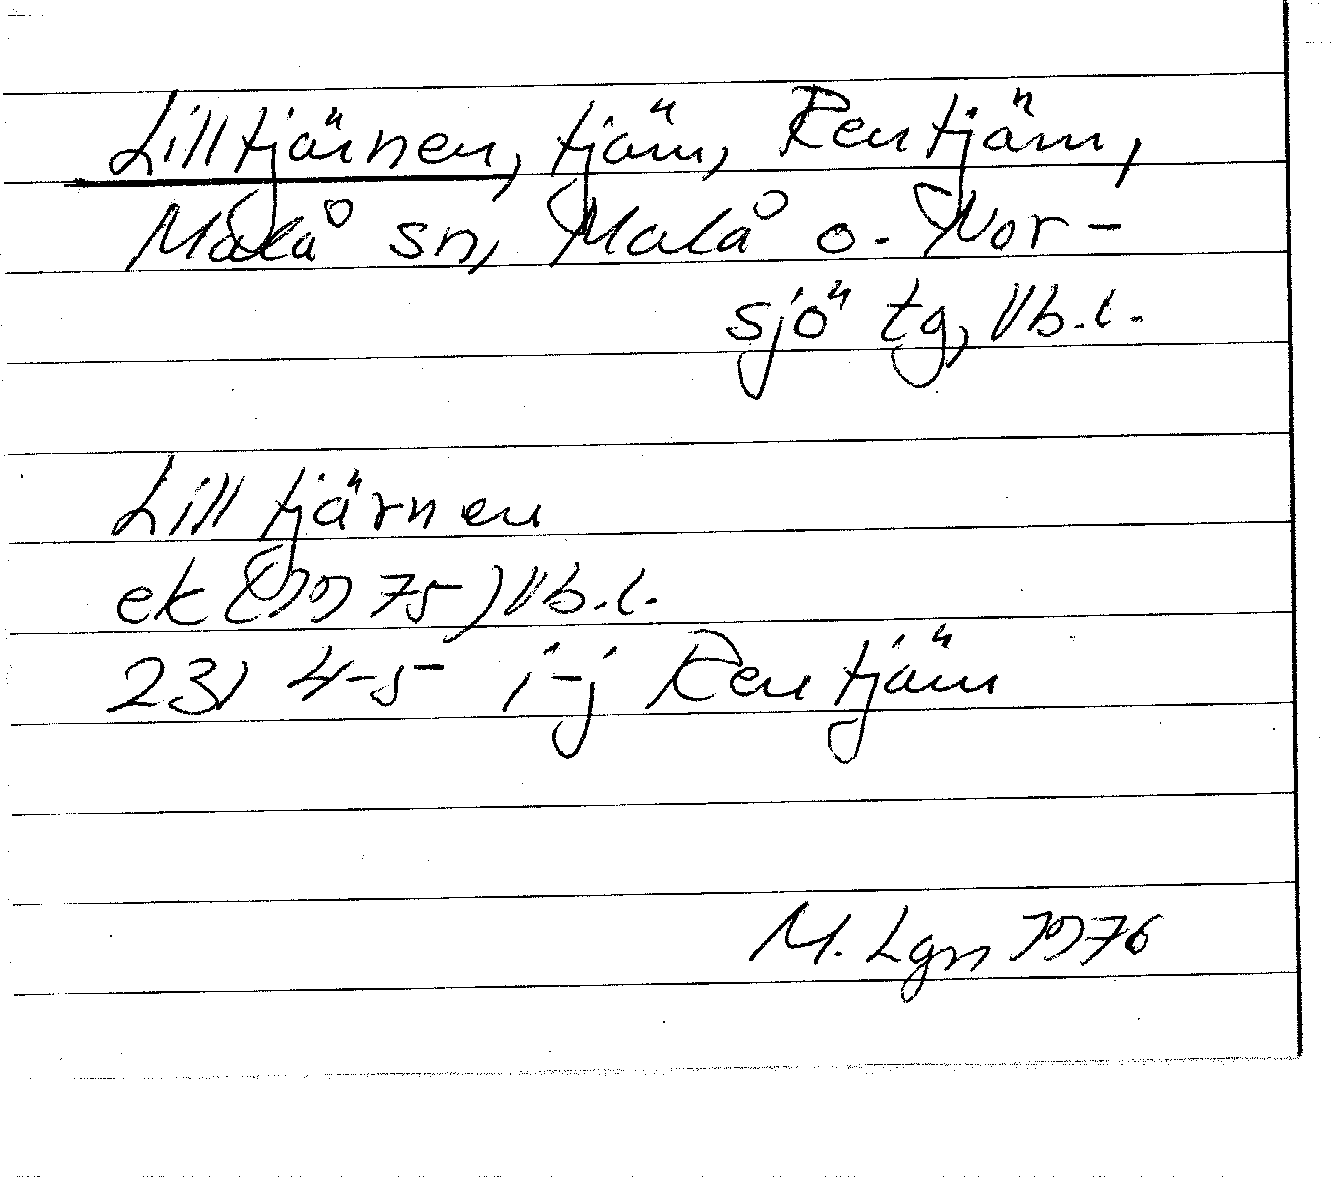 Lilltjärnen, tjärn, Rentjärn,
Malå sn, Malå o. Nor-
sjö tg, Vb.l.
Lilltjärnen
ek (1975) Vb.l.
23J 4-5 i-j Rentjärn
M. Lgn 1976